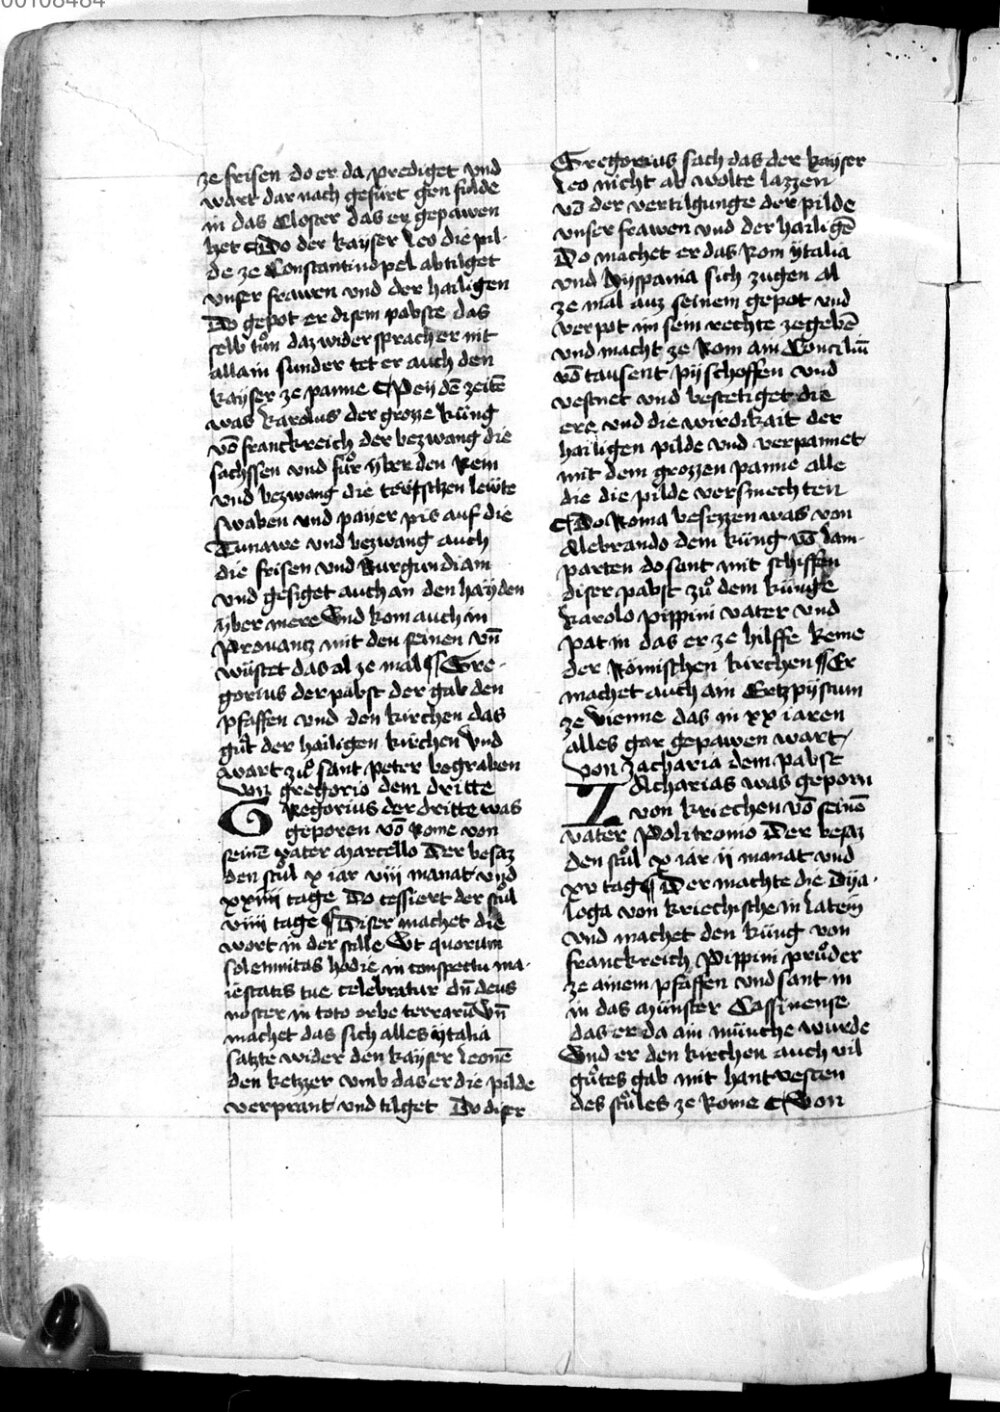 00108484
ze frisen do er da prediget vnd
wart dar nach gefürt gen fulde
in das Closter das er gepawen
het Do der kayser Leo die pil-
de ze Constantinopel abtilget
vnser frawen vnd der hailigen
Do gepot er disem pabste das
selb tůn daz wider sprach er nit
allain sunder tet er auch den
kayser ze panne Pey dē zeitē
was karolus der grozze küng
vō franckreich der bezwang die
sachssen vnd fůr yber den Rein
vnd bezwang die tewtschen lewte
swaben vnd payer pis auf die
Tunawe vnd bezwang auch
die frisen vnd Burgundiam
vnd gesiget auch an den hayden
yber mere Vnd kom auch in
Prouantz mit den seinen vn̄
wüstet das al ze mal ¶ Gre-
gorius der pabst der gab den
pfaffen vnd den kirchen das
gůt der hailigen kirchen Vnd
wart zů sant peter begraben
Von gregorio dem dritte
GRegorius der dritte was
geporen vō Rome von
seinē vater Marcello Der besaz
den stůl x iar viii manat vnd
xxiiii tage Do cessiert der stůl
viiii tage ¶ Diser machet die
wort in der stille Vt quorum
solemnitas hodie in conspectu ma-
iestatis tue celebratur dn̄ deus
noster in toto orbe terrarū Vn̄
machet das sich alles ytalia
satzte wider den kayser Leonē
den ketzer vmb das er die pilde
verprant vnd tilget Do diser
Gregorius sach das der kayser
Leo nicht ab wolte lazzen
vō der vertilgunge der pilde
vnser frawen vnd der hailigē
Do machet er das Rom ytalia
vnd hyspania sich zugen al
ze mal auz seinem gepot vnd
verpot im sein rechte zegebē
vnd macht ze Rom ain Conciliū
vō tausent pyschoffen vnd
vestnet vnd bestetiget die
ere vnd die wirdikait der
hailigen pilde vnd verpannet
mit dem grozzen panne alle
die die pilde versmechten
Do Roma besezzen was von
Alebrando dem küng vō lam-
parten do sant mit schiffen
diser pabst zů dem künge
karolo pippini vater vnd
pat in das er ze hilffe keme
der Römischen kirchen ¶ Er
machet auch ain Ertzpistum
ze vienne das in xx iaren
alles gar gepawen wart
Von Zacharia dem pabste
ZAcharias was geporn
von kriechen vō seinē
vater Politronio Der besaz
den stůl x iar ii manat vnd
xv tag ¶ Der machte die Dya-
loga von kriechische in latein
vnd machet den küng von
franckreich Pippini průder
ze ainem pfaffen vnd sant in
in das münster Cassinense
das er da ain münche wurde
Vnd er den kirchen auch vil
gůtes gab mit hantvesten
des stůles ze Rome Von